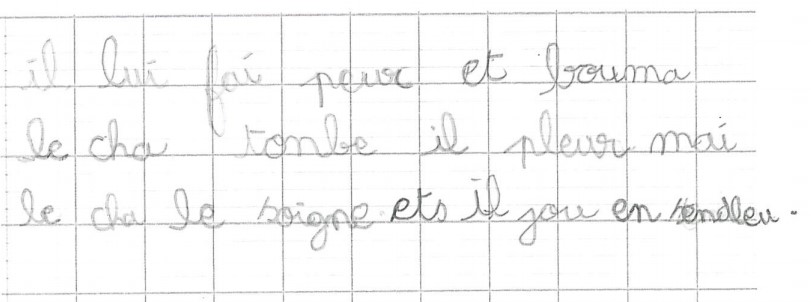 il lui fai peur et bouma
le cha tombe il pleur mai
le cha le soigne ets il jou en sendleu.